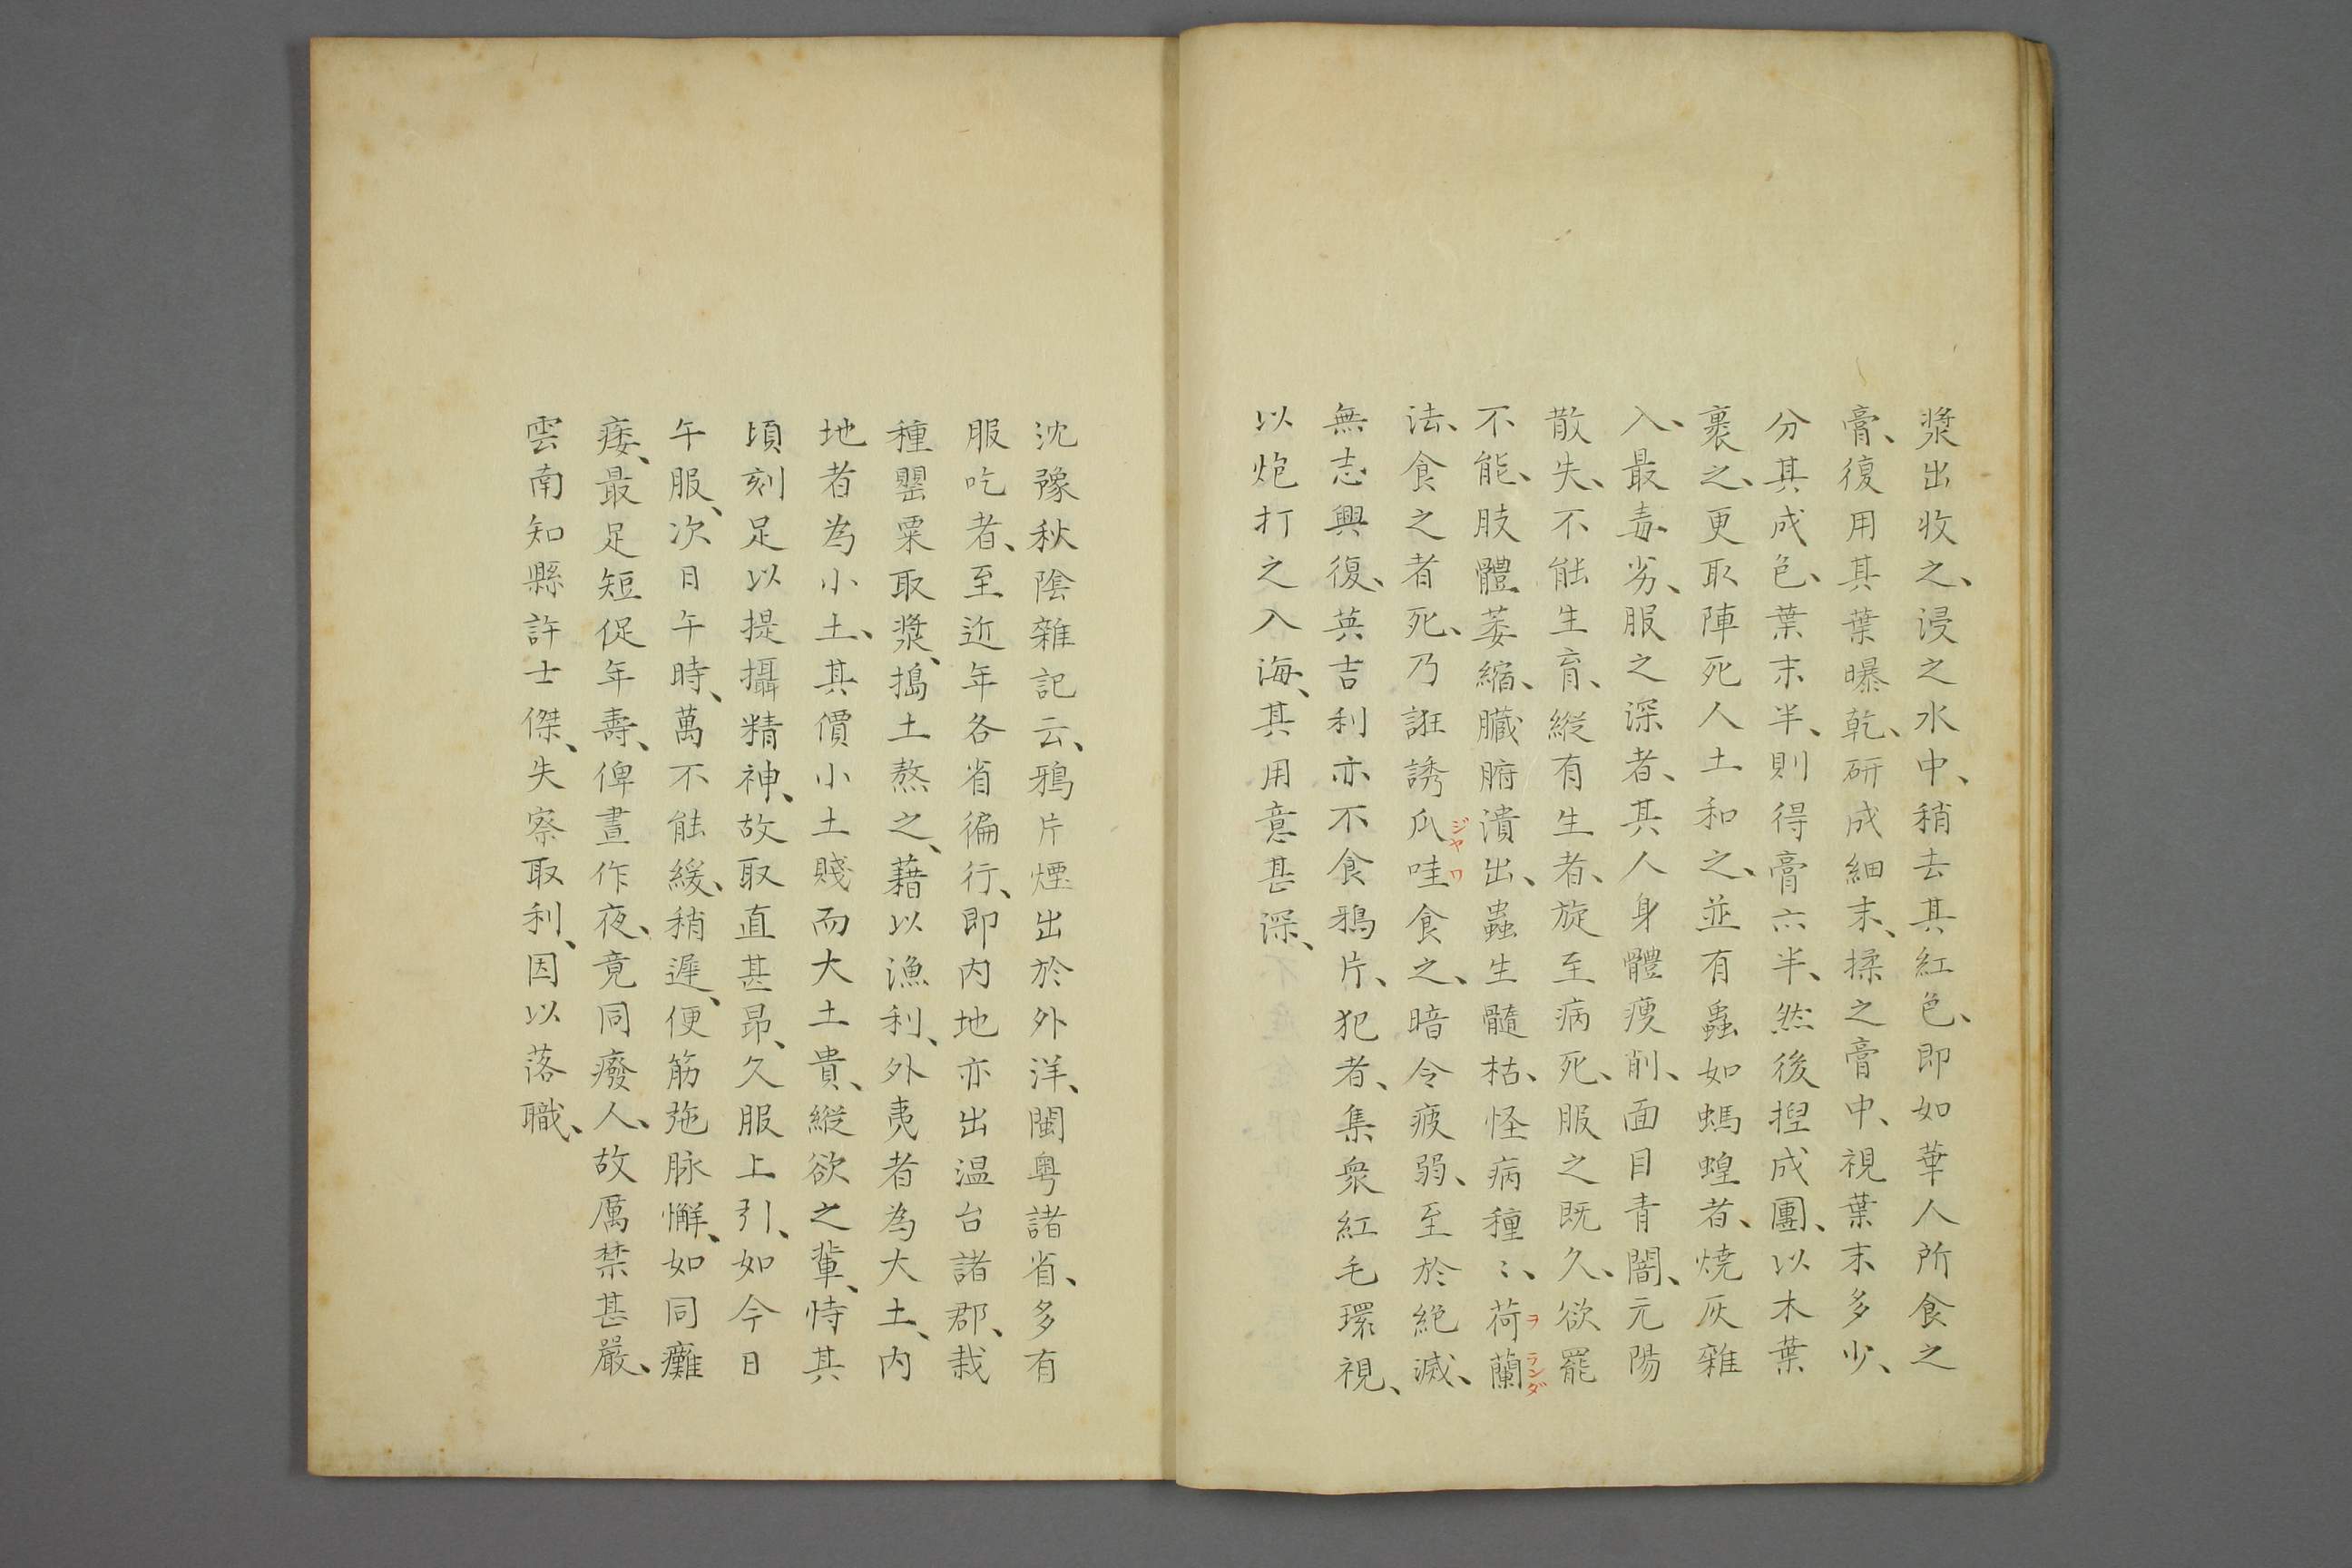 漿出收之、浸之水中、稍去其紅色、即如華人所食之
膏、復用其葉曝乾、研成細末、揉之膏中、視葉末多少、
分其成色、葉末半、則得膏六半、然後揑成團、以木葉
裹之、更取陣死人土和之、並有蟲如螞蝗者、燒灰雜
入、最毒劣、服之深者、其人身體瘦削、面目青闇、元陽
散失、不能生育、縱有生者、旋至病死、服之既久、欲罷
不能、肢體萎縮、臟腑潰出、蟲生髓枯、怪病種〻、荷蘭
ヲランダ
法、食之者死、乃誑誘爪哇食之、暗令疲弱、至於絕滅、
ジヤワ
無志興復、英吉利亦不食鴉片、犯者、集衆紅毛環視、
以炮打之入海、其用意甚深、
沈豫秋陰雜記云、鴉片煙出於外洋、閩粵諸省、多有
服吃者、至近年各省徧行、即内地亦出温台諸郡、栽
種罌粟取漿、搗土熬之、藉以漁利、外夷者為大土、内
地者為小土、其價小土賤而大土貴、縱欲之輩、恃其
頃刻足以提攝精神、故取直甚昂、久服上引、如今日
午服、次日午時、萬不能緩、稍遲、便筋弛脉懈、如同癱
痿、最足短促年壽、俾晝作夜、竟同廢人、故厲禁甚嚴、
雲南知縣許士傑、失察取利、因以落職、